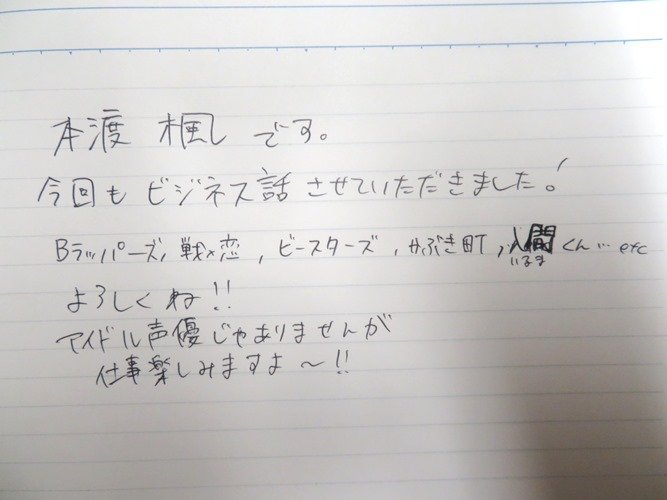 本渡 楓 です。
今回も ビジネス話 させていただきました!
Bラッパーズ, 戦×恋, ビースターズ, かぶき町, 入間くん… etc
いるま
よろしくね!!
アイドル声優じゃありませんが
仕事楽しみますよ〜!!